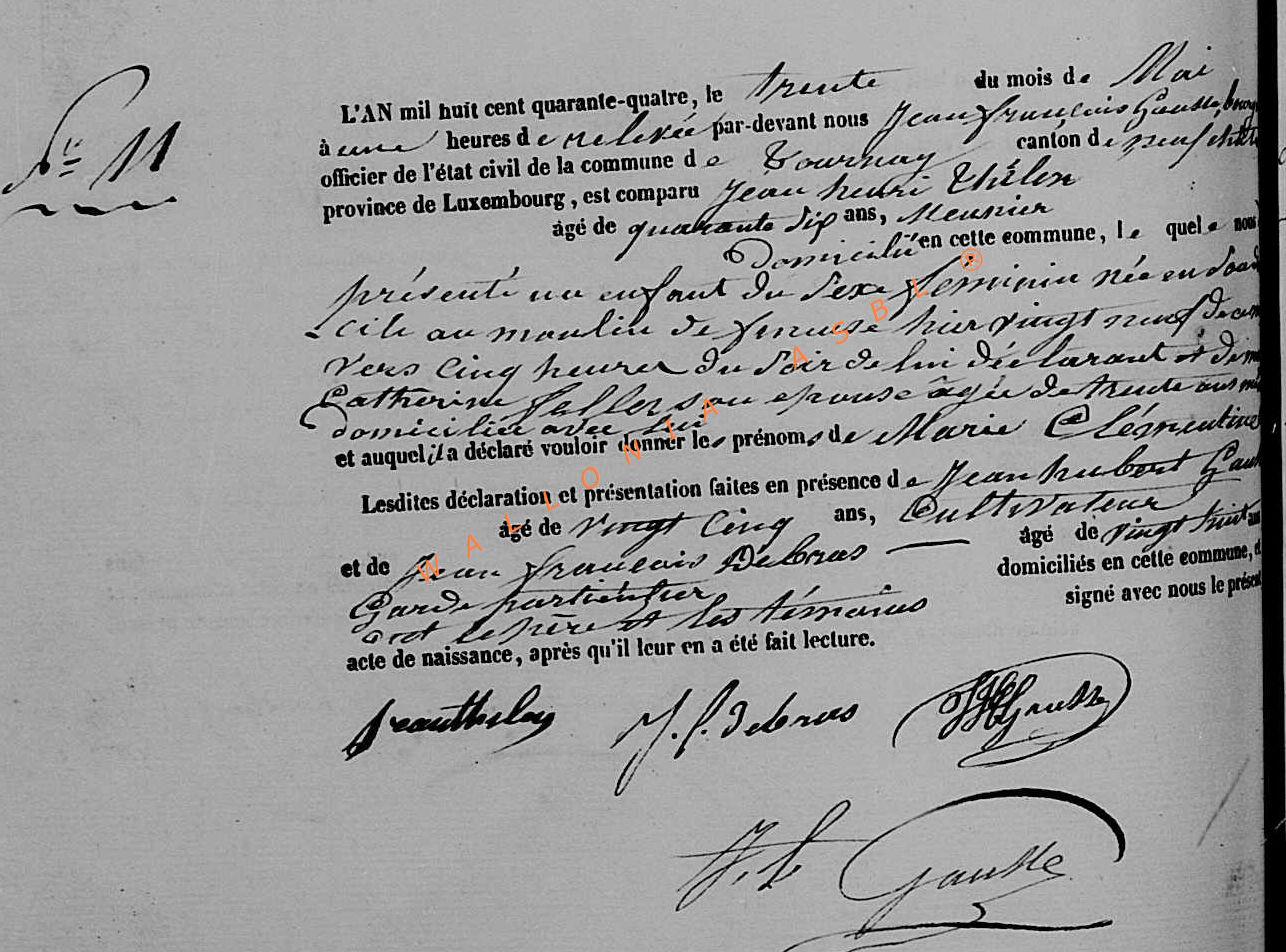 N° 11
L'AN mil huit cent quarante-quatre, le trente du mois de Mai
à une heures de relevée par-devant nous Jean françois Gausse, bourg
officier de l'état civil de la commune de Tournay canton de neufchâte
province de Luxembourg, est comparu Jean henri Thilen
âgé de quarante six ans, Meunier
Domicilié en cette commune, le quel e nous
présenté un enfant du sexe féminin née en son do
cile au moulin de hier vingt neuf de ce m
vers cinq heures du soir de lui déclarant et de
Catherine feller son epouse âgée de trente ans
domiciliée avec lui
et auquel il a déclaré vouloir donner les prénoms de Marie Clémentine
Lesdites déclaration et présentation faites en présence de Jean hubert Gau
âgé de vingt cinq ans, Cultivateur
et de Jean françois Debras âgé de vingt huit ans
Garde particulier domiciliés en cette commune, e
ont le père et les témoins signé avec nous le présent
acte de naissance, après qu'il leur en a été fait lecture.
J. f. debras
Gausse
Gausse
WALLONIA ASBL ®